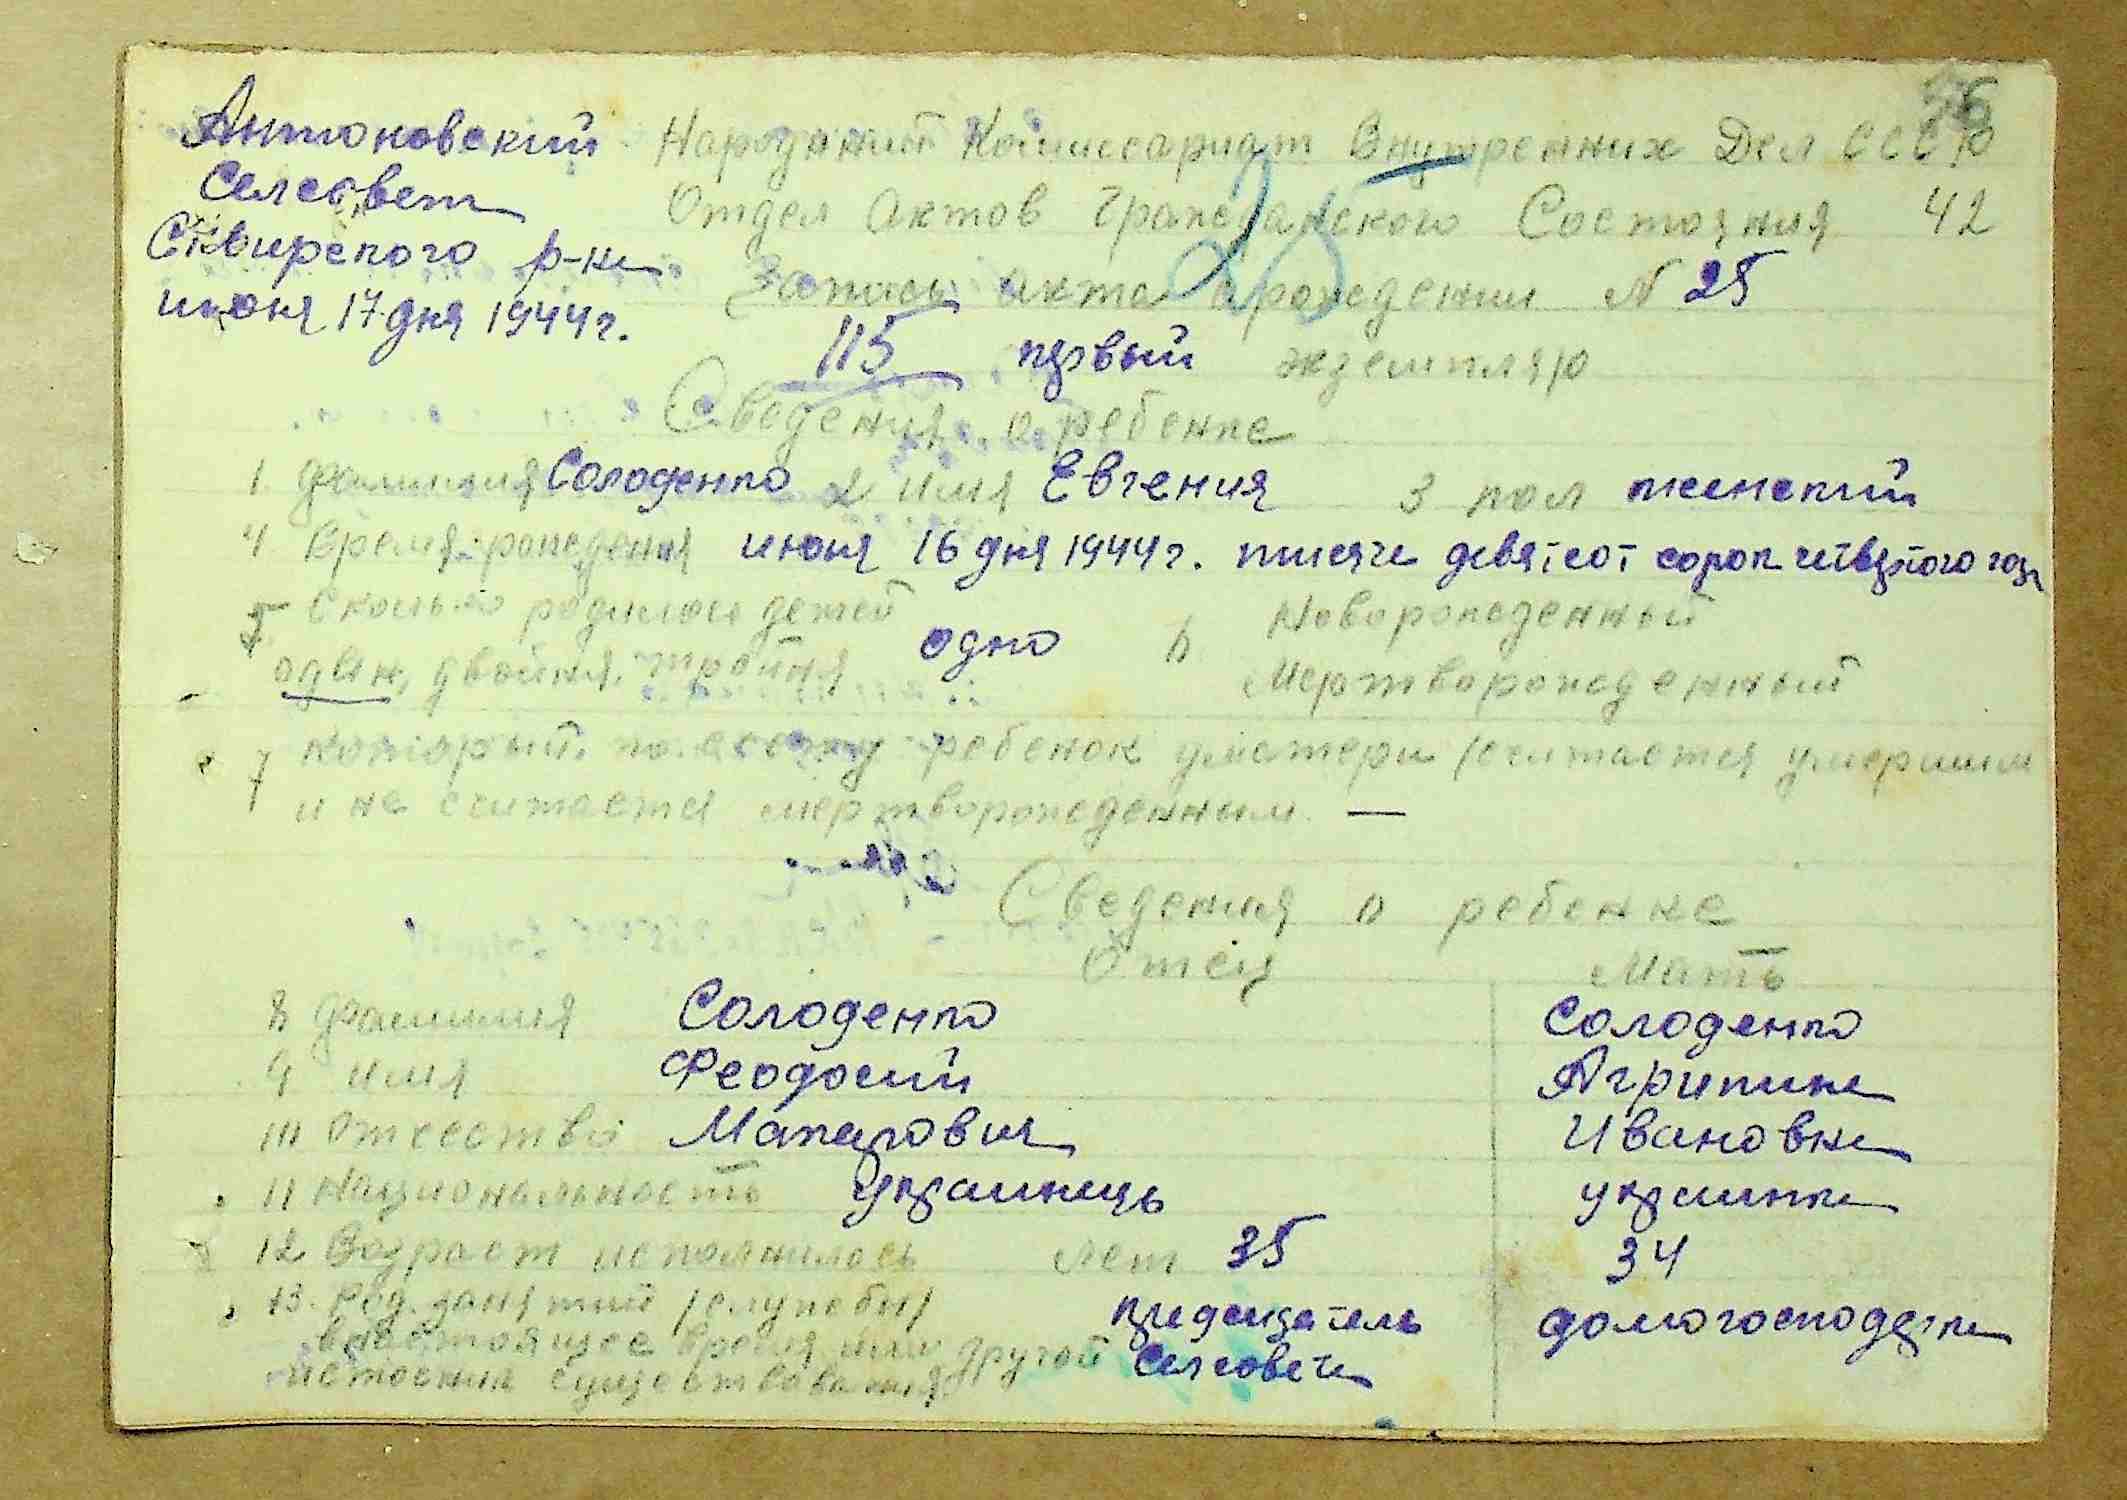 56
Антоновский
Селсовет
Сквирского р-на
июня 17 дня 1944 г.
Народний Комиссариат Внутренних Дел СССР
Отдел Актов Гражданского Состояния 42
Запись акта о рождении N 25
115 первый экземпляр
Сведения о ребенке
1. фамилия Солоденко 2 имя Евгения 3 пол женский
4. Время рождения июня 16 дня 1944 г. тисяча девятсот сорок четвертого года
5. Сколько родилось детей
один, двойня, тройня одно 6 Новорожденный
Мертворожденный
7 который по счету ребенок у матери (считается умершим
и не считается мертворожденным. —
Сведения о ребенке
Отец Мать
8 фамилия Солоденко Солоденко
9 имя Феодосий Агрипина
10 отчество Макарович Ивановна
11 Национальность Украинець украинка
12 Возраст исполнилось лет 35 34
13. Род. занятий (службы) председатель домогосподарка
в настоящее время или другой Селсовета
источник существования